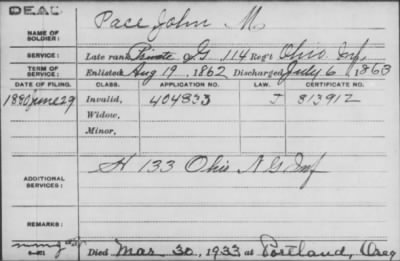 DEAD
NAME OF SOLDIER: Pace John M.
SERVICE: Late rank Private Co G, 114 Reg't Ohio Inf,
TERM OF SERVICE: Enlisted Aug 19, 1862 Discharged July 6, 1863
DATE OF FILING. CLASS. APPLICATION NO. LAW. CERTIFICATE NO.
1880 June 29 Invalid, 404833 J 813912
Widow,
Minor,
ADDITIONAL SERVICES: H 133 Ohio N G Inf
REMARKS:
6-421 Died Mar. 30, 1933 at Portland, Oreg